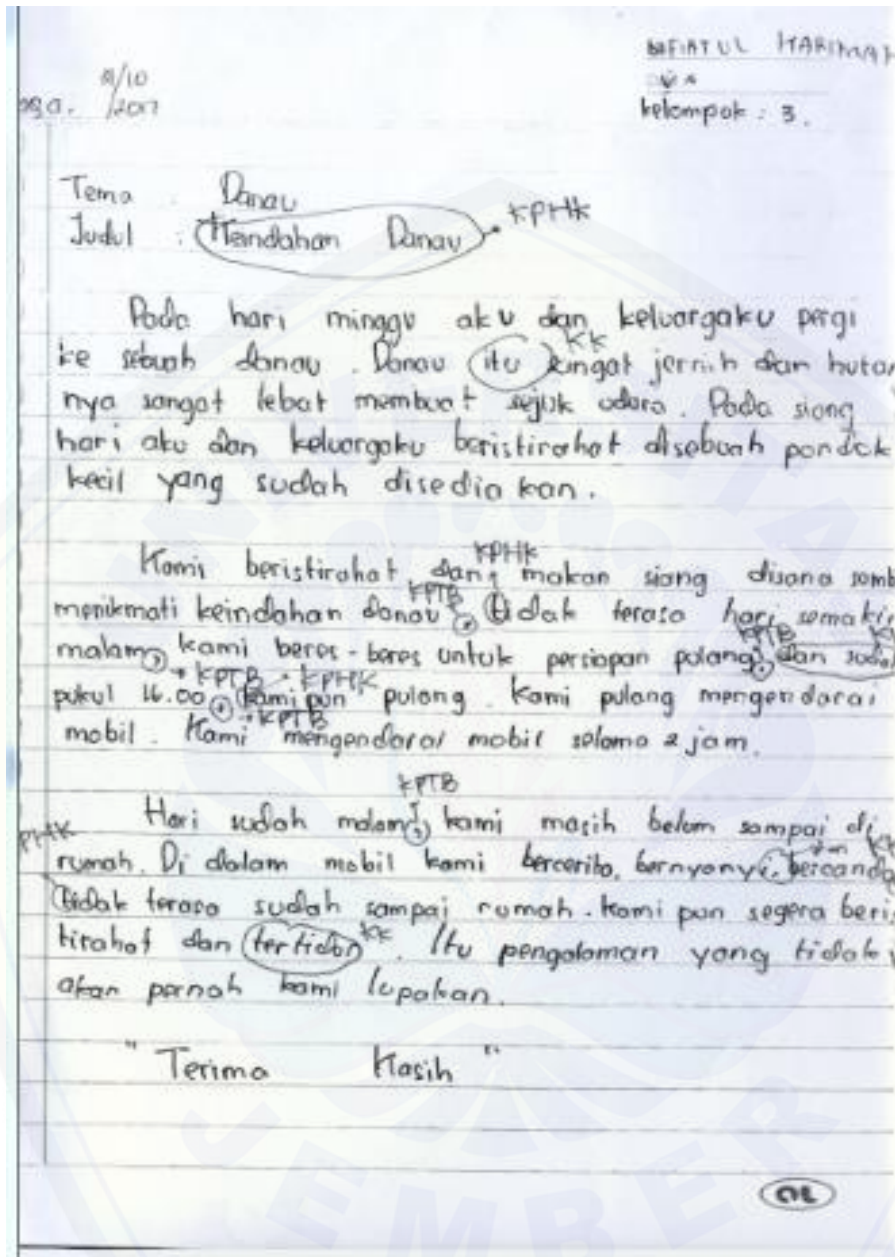 HARIMAH
9/10
2017
kelompok : 3.
Tema Danau
Judul : Keindahan Danau KPHK
Pada hari minggu aku dan keluargaku pergi
KK
ke sebuah danau. Danau itu sangat jernih dan hutan
nya sangat lebat membuat sejuk udara. Pada siang
hari aku dan keluargaku beristirahat disebuah pondok
kecil yang sudah disediakan.
KPHK
Kami beristirahat dan makan siang disana samb
KPTB
menikmati keindahan danau, tidak terasa hari semakin
KPTB
malam, kami beres-beres untuk persiapan pulang, dan sudah
KPTB KPHK
pukul 16.00, kami pun pulang. Kami pulang mengendarai
KPTB
mobil. Kami mengendarai mobil selama 2 jam.
KPTB
Hari sudah malam, kami masih belum sampai di
PHK
rumah. Di dalam mobil kami bercerita, bernyanyi, bercanda
tidak terasa sudah sampai rumah. kami pun segera beris
KK
tirahat dan tertidur. Itu pengalaman yang tidak
akan pernah kami lupakan.
"Terima Kasih"
JEMBER